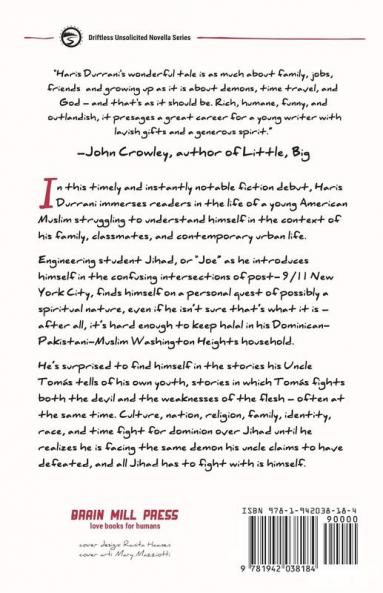 Driftless Unsolicited Novella Series
"Haris Durrani's wonderful tale is as much about family, jobs,
friends and growing up as it is about demons, time travel, and
God – and that's as it should be. Rich, humane, funny, and
outlandish, it presages a great career for a young writer with
lavish gifts and a generous spirit."
–John Crowley, author of Little, Big
In this timely and instantly notable fiction debut, Haris
Durrani immerses readers in the life of a young American
Muslim struggling to understand himself in the context of
his family, classmates, and contemporary urban life.
Engineering student Jihad, or "Joe" as he introduces
himself in the confusing intersections of post-9/11 New
York City, finds himself on a personal quest of possibly a
spiritual nature, even if he isn't sure that's what it is –
after all, it's hard enough to keep halal in his Dominican-
Pakistani-Muslim Washington Heights household.
He's surprised to find himself in the stories his Uncle
Tomás tells of his own youth, stories in which Tomás fights
both the devil and the weaknesses of the flesh – often at
the same time. Culture, nation, religion, family, identity,
race, and time fight for dominion over Jihad until he
realizes he is facing the same demon his uncle claims to have
defeated, and all Jihad has to fight with is himself.
BRAIN MILL PRESS
love books for humans
cover design: Ranita Haanen
cover art: Mary Mazziotti
ISBN 978-1-942038-18-4
90000
9 781942 038184